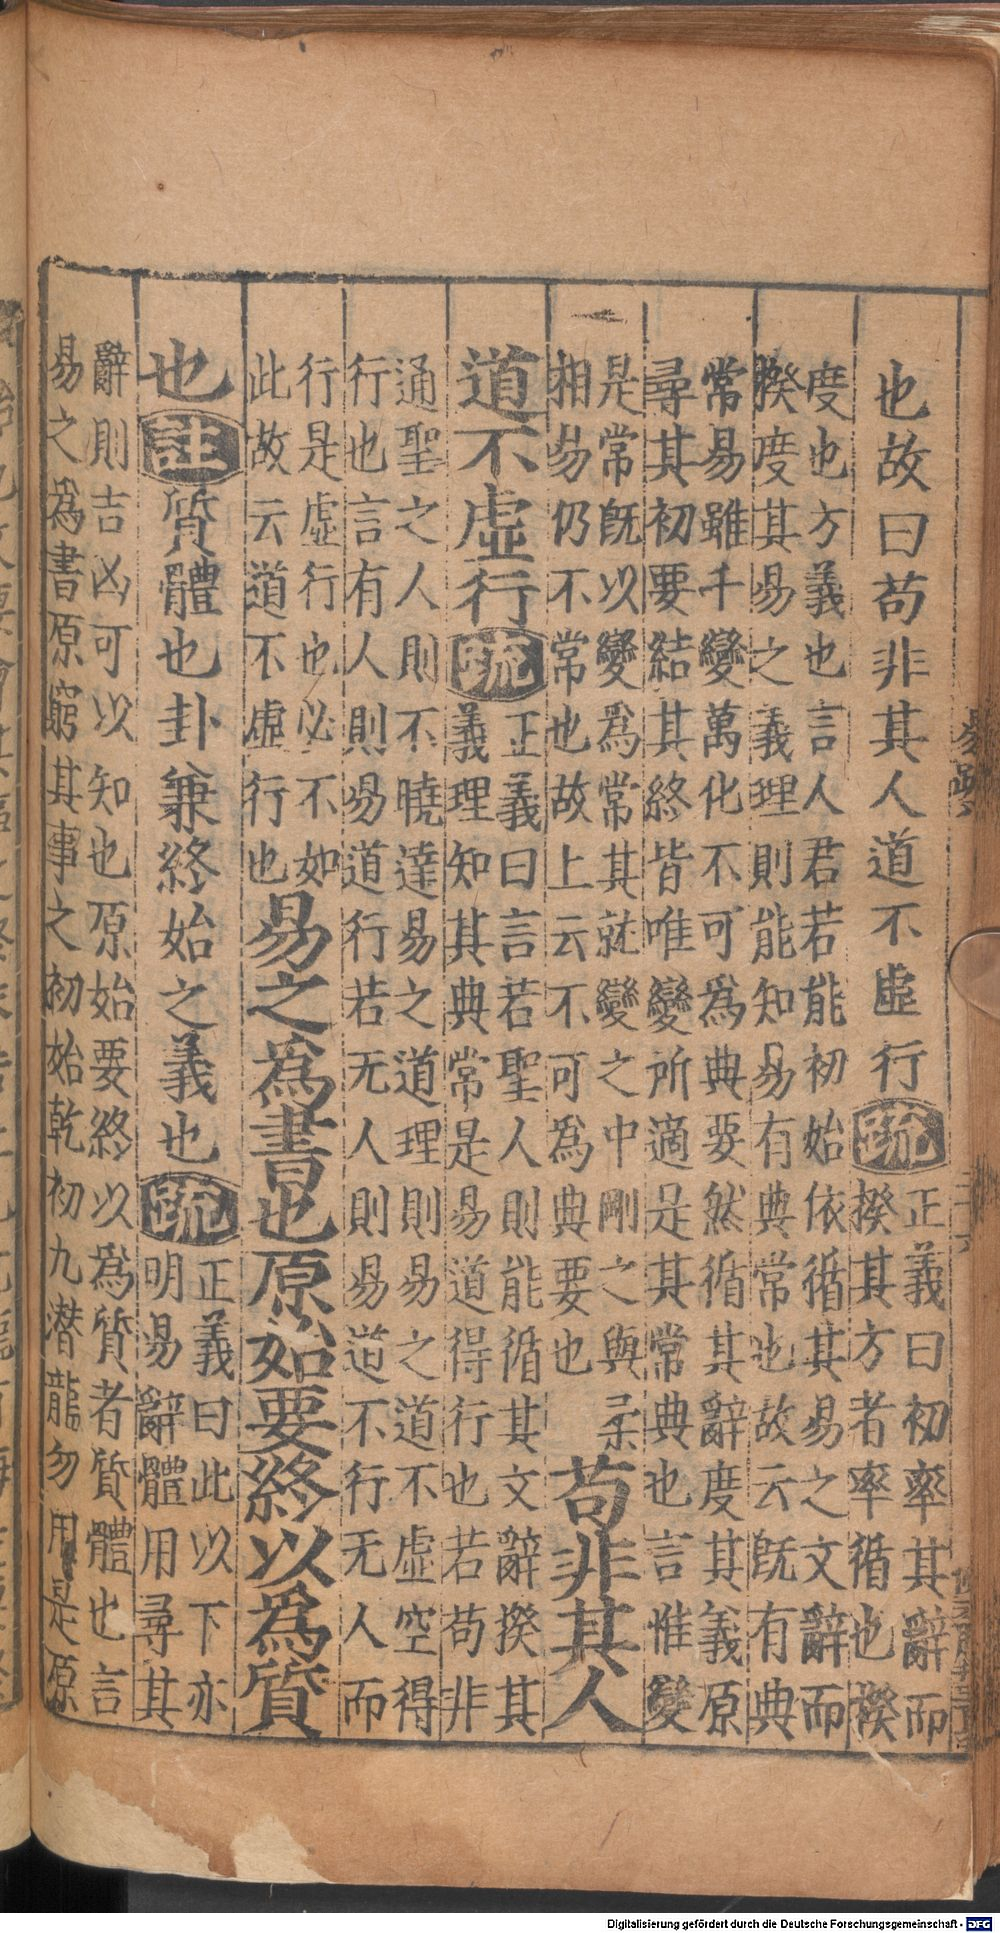 也故曰苟非其人道不虛行疏正義曰初率其辭而
揆其方者率循也揆
度也方義也言人君若能初始依循其易之文辭而
揆度其易之義理則能知易有典常也故云旣有典
常易雖千變萬化不可為典要然循其辭度其義原
尋其初要結其終皆唯變所適是其常典也言惟變
是常旣以變為常其就變之中剛之與柔
相易仍不常也故上云不可為典要也
苟非其人
道不虛行疏正義曰言若聖人則能循其文辭揆其
義理知其典常是易道得行也若苟非
通聖之人則不曉達易之道理則易之道不虛空得
行也言有人則易道行若无人則易道不行无人而
行是虛行也必不如
此故云道不虛行也
易之為書也原始要終以為質
也註質體也卦兼終始之義也疏正義曰此以下亦
明易辭體用尋其
辭則吉凶可以知也原始要終以為質者質體也言
易之為書原窮其事之初始乾初九潛龍勿用是原
Digitalisierung gefördert durch die Deutsche Forschungsgemeinschaft - DFG